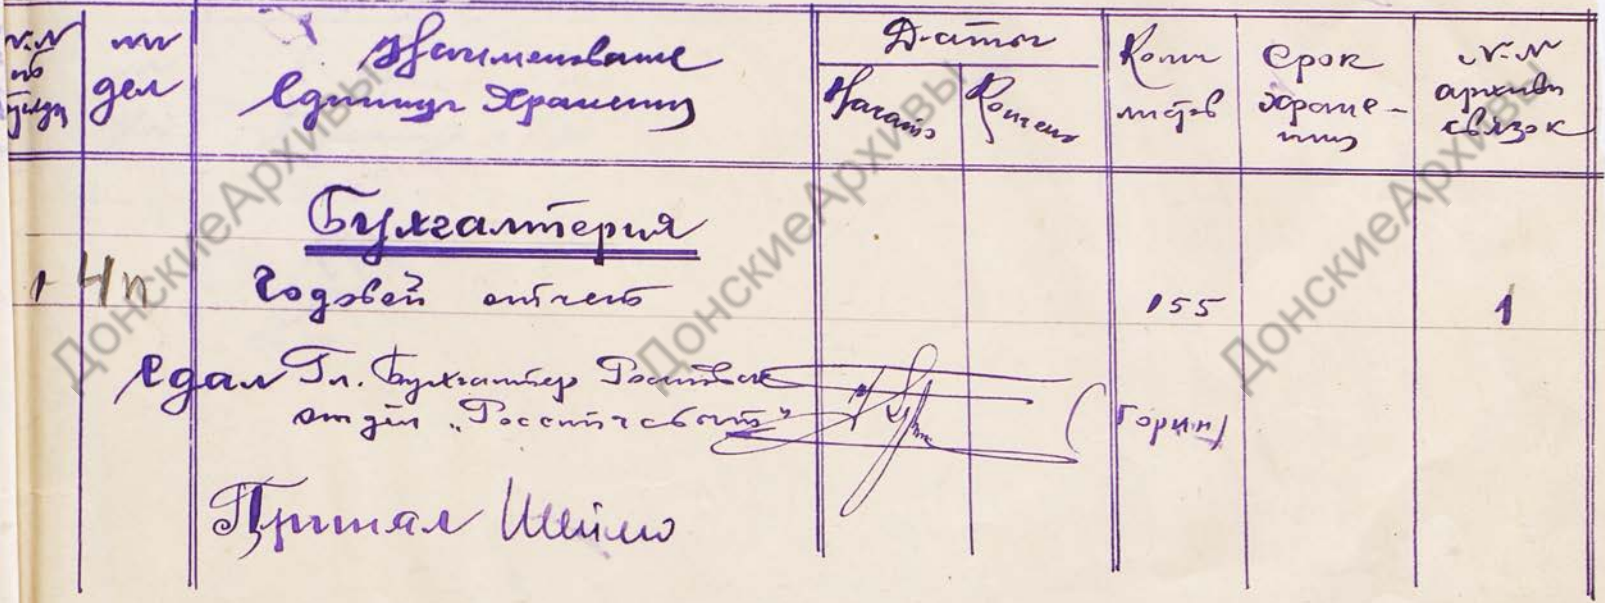 №№ по №№ дел Наименование Единицы Хранения Даты Начато Кончено Колич листов Срок хране-ния №№ архивн связок
Бухгалтерия
1 4п Годовой отчет 155 1
Сдал Гл. Бухгалтер Ростовск
отдел (Горин)
Принял
ДонскиеАрхивы
ДонскиеАрхивы
ДонскиеАрхивы